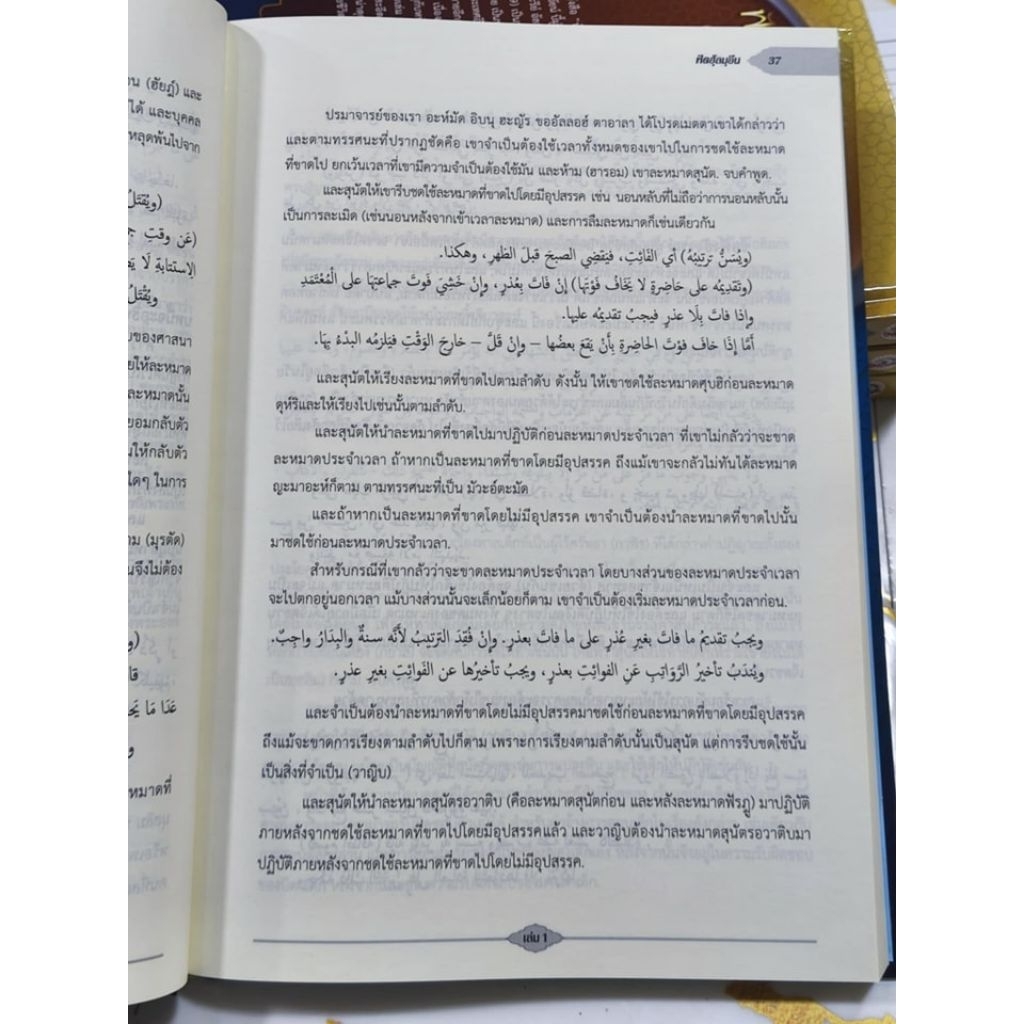 ฟัตฮุ้ลมุอีน 37
ปรมาจารย์ของเรา อะห์มัด อิบนุ ฮะญัร ขออัลลอฮ์ ตาอาลา ได้โปรดเมตตาเขาได้กล่าวว่า
และตามทรรศนะที่ปรากฏชัดคือ เขาจำเป็นต้องใช้เวลาทั้งหมดของเขาไปในการชดใช้ละหมาด
ที่ขาดไป ยกเว้นเวลาที่เขามีความจำเป็นต้องใช้มัน และห้าม (ฮารอม) เขาละหมาดสุนัต. จบคำพูด.
และสุนัตให้เขารีบชดใช้ละหมาดที่ขาดไปโดยมีอุปสรรค เช่น นอนหลับที่ไม่ถือว่าการนอนหลับนั้น
เป็นการละเมิด (เช่นนอนหลังจากเข้าเวลาละหมาด) และการลืมละหมาดก็เช่นเดียวกัน
(ويُسَنُّ ترتيبُه) أي الفَائِتِ، فيَقضِي الصبحَ قبلَ الظهرِ، وهكذا.
(وتَقدِيمُه على حَاضِرةٍ لا يَخَافُ فَوْتَها) إنْ فاتَ بِعُذرٍ، وإنْ خَشِيَ فَوتَ جماعتِها على الْمُعْتَمَدِ
وإذا فاتَ بِلَا عذرٍ فيجبُ تقديمُه عليها.
أمَّا إذَا خافَ فوْتَ الحَاضِرةِ بِأنْ يَقعَ بعضُها – وإنْ قلَّ – خارِجَ الوَقْتِ فيَلزمُه البدْءُ بِها.
และสุนัตให้เรียงละหมาดที่ขาดไปตามลำดับ ดังนั้น ให้เขาชดใช้ละหมาดศุบฮิก่อนละหมาด
ดุห์ริและให้เรียงไปเช่นนั้นตามลำดับ.
และสุนัตให้นำละหมาดที่ขาดไปมาปฏิบัติก่อนละหมาดประจำเวลา ที่เขาไม่กลัวว่าจะขาด
ละหมาดประจำเวลา ถ้าหากเป็นละหมาดที่ขาดโดยมีอุปสรรค ถึงแม้เขาจะกลัวไม่ทันได้ละหมาด
ญะมาอะห์ก็ตาม ตามทรรศนะที่เป็น มัวะอ์ตะมัด
และถ้าหากเป็นละหมาดที่ขาดโดยไม่มีอุปสรรค เขาจำเป็นต้องนำละหมาดที่ขาดไปนั้น
มาชดใช้ก่อนละหมาดประจำเวลา.
สำหรับกรณีที่เขากลัวว่าจะขาดละหมาดประจำเวลา โดยบางส่วนของละหมาดประจำเวลา
จะไปตกอยู่นอกเวลา แม้บางส่วนนั้นจะเล็กน้อยก็ตาม เขาจำเป็นต้องเริ่มละหมาดประจำเวลาก่อน.
ويجبُ تقديمُ ما فاتَ بغيرِ عُذرٍ على ما فاتَ بعذرٍ. وإنْ فُقِدَ الترتيبُ لأنَّه سنةٌ والبِدَارُ واجِبٌ.
ويُندَبُ تأخيرُ الرَّوَاتِبِ عَنِ الفَوائِتِ بعذرٍ، ويجبُ تأخيرُها عن الفَوائِتِ بغيرِ عذرٍ.
และจำเป็นต้องนำละหมาดที่ขาดโดยไม่มีอุปสรรคมาชดใช้ก่อนละหมาดที่ขาดโดยมีอุปสรรค
ถึงแม้จะขาดการเรียงตามลำดับไปก็ตาม เพราะการเรียงตามลำดับนั้นเป็นสุนัต แต่การรีบชดใช้นั้น
เป็นสิ่งที่จำเป็น (วาญิบ)
และสุนัตให้นำละหมาดสุนัตรอวาติบ (คือละหมาดสุนัตก่อน และหลังละหมาดฟัรฎู) มาปฏิบัติ
ภายหลังจากชดใช้ละหมาดที่ขาดไปโดยมีอุปสรรคแล้ว และวาญิบต้องนำละหมาดสุนัตรอวาติบมา
ปฏิบัติภายหลังจากชดใช้ละหมาดที่ขาดไปโดยไม่มีอุปสรรค.
เล่ม 1